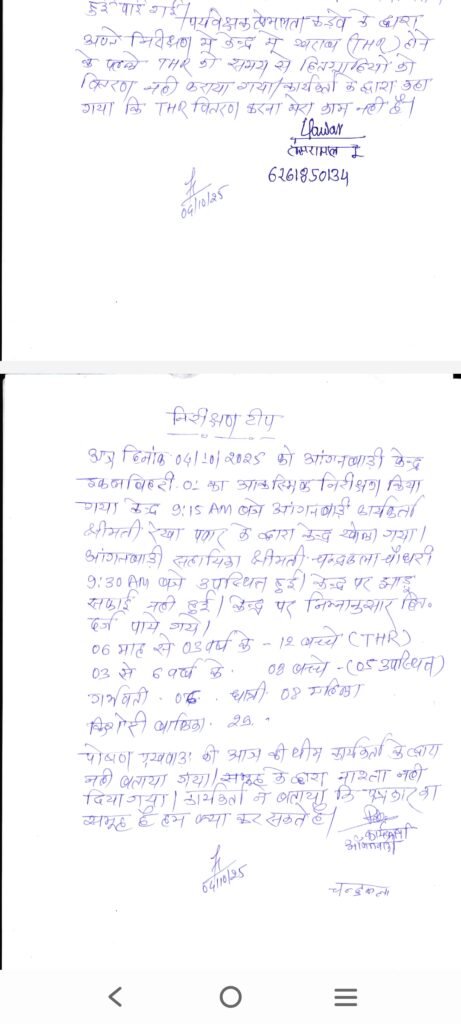 हुई पाई गई। पर्यवेक्षक हेमलता कड़वे के द्वारा
अपने निरीक्षण में केन्द्र में खराब (THR) होने
के पहले THR को समय से हितग्राहियों को
वितरण नही कराया गया। कार्यकर्ता के द्वारा कहा
गया कि THR वितरण करना मेरा काम नही है।
Yawar
6261850134
04/10/25
निरीक्षण टीप
आज दिनांक 04/10/2025 को आंगनबाड़ी केन्द्र
01 का आकस्मिक निरीक्षण किया
गया केन्द्र 9:15 AM बजे आंगनबाड़ी कार्यकर्ता
श्रीमती रेखा पवार के द्वारा केन्द्र खोला गया।
आंगनबाड़ी सहायिका श्रीमती चन्द्रकला चौधरी
9:30 AM बजे उपस्थित हुई। केन्द्र पर झाडू
सफाई नही हुई। केन्द्र पर निम्नानुसार हित.
दर्ज पाये गये।
06 माह से 03 वर्ष के - 12 बच्चे (THR)
03 से 6 वर्ष के - 08 बच्चे - (05 उपस्थित)
गर्भवती - 06 . धात्री 08 महिला
किशोरी बालिका. 29.
पोषण पखवाडा की आज की थीम कार्यकर्ता के द्वारा
नही बताया गया। समूह के द्वारा नाश्ता नही
दिया गया। कार्यकर्ता ने बताया कि पत्रकार का
समूह है हम क्या कर सकते है।
कार्यकर्ता
आंगनबाडी
04/10/25
चन्द्रकला